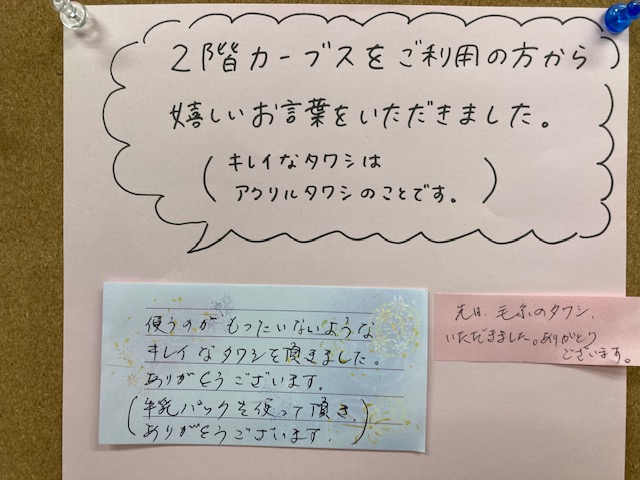 2階カーブスをご利用の方から
嬉しいお言葉をいただきました。
(キレイなタワシは
アクリルタワシのことです。)
使うのがもったいないような
キレイなタワシを頂きました。
ありがとうございます。
(牛乳パックを使って頂き、
ありがとうございます.)
先日、毛糸のタワシ、
いただきました。ありがとう
ございます。